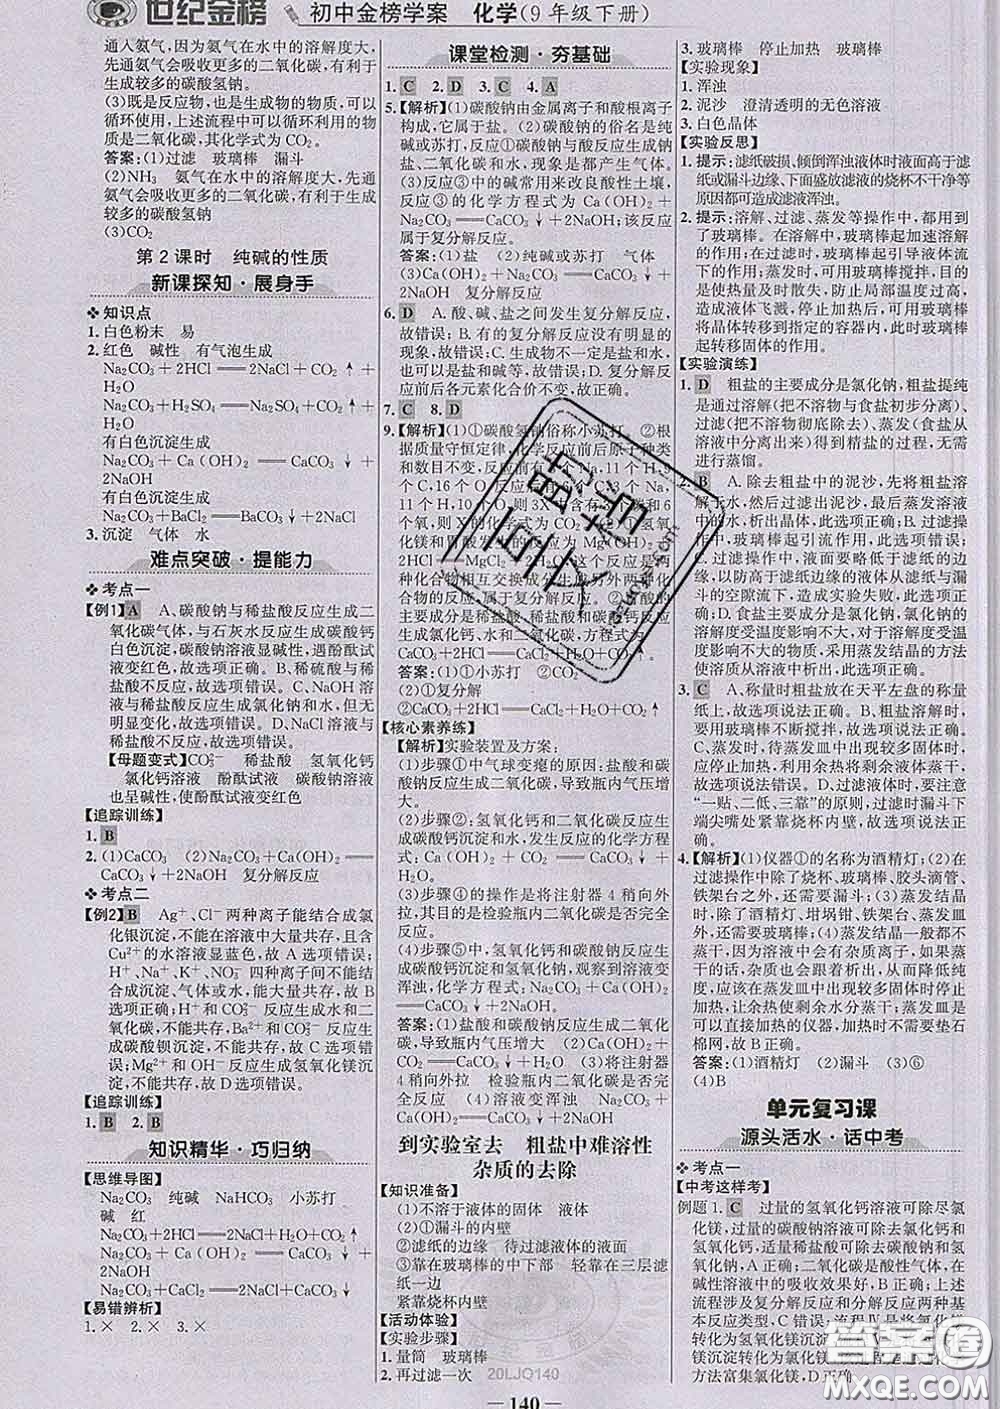 世纪金榜 初中金榜学案 化学(9年级下册)
通入氨气，因为氨气在水中的溶解度大，
先通氨气会吸收更多的二氧化碳，有利于
生成较多的碳酸氢钠。
(3)既是反应物，也是生成物的物质，可以
循环使用，上述流程中可以循环利用的物
质是二氧化碳，其化学式为CO₂。
答案:(1)过滤 玻璃棒 漏斗
(2)NH₃ 氨气在水中的溶解度大，先通
氨气会吸收更多的二氧化碳，有利于生成
较多的碳酸氢钠
(3)CO₂
第2课时 纯碱的性质
新课探知·展身手
知识点
1.白色粉末 易
2.红色 碱性 有气泡生成
Na₂CO₃+2HCl══2NaCl+CO₂↑+
H₂O
Na₂CO₃+H₂SO₄══Na₂SO₄+CO₂↑+
H₂O
有白色沉淀生成
Na₂CO₃+Ca(OH)₂══CaCO₃↓+
2NaOH
有白色沉淀生成
Na₂CO₃+BaCl₂══BaCO₃↓+2NaCl
3.沉淀 气体 水
难点突破·提能力
考点一
【例1】A A、碳酸钠与稀盐酸反应生成二
氧化碳气体，与石灰水反应生成碳酸钙
白色沉淀，碳酸钠溶液显碱性，遇酚酞试
液变红色，故选项正确。B、稀硫酸与稀
盐酸不反应，故选项错误。C、NaOH溶液
与稀盐酸反应生成氯化钠和水，但无
明显现象，故选项错误。D、NaCl溶液与
稀盐酸不反应，故选项错误。
【母题变式】CO₃²⁻ 稀盐酸 氢氧化钙
氯化钙溶液 酚酞试液 碳酸钠溶液
也呈碱性，使酚酞试液变红色
【追踪训练】
1. B
2. (1)CaCO₃ (2)Na₂CO₃+Ca(OH)₂══
CaCO₃↓+2NaOH 复分解反应
考点二
【例2】B Ag⁺、Cl⁻两种离子能结合成氯
化银沉淀，不能在溶液中大量共存，且含
Cu²⁺的水溶液显蓝色，故A选项错误；
H⁺、Na⁺、K⁺、NO₃⁻四种离子间不能结
合成沉淀、气体或水，能大量共存，故B
选项正确；H⁺、CO₃²⁻反应生成水和二
氧化碳，不能共存，Ba²⁺和CO₃²⁻反应生
成碳酸钡沉淀，不能共存，故C选项错
误；Mg²⁺和OH⁻反应生成氢氧化镁沉
淀，不能共存，故D选项错误。
【追踪训练】
1. B 2. B
知识精华·巧归纳
【思维导图】
Na₂CO₃ 纯碱 NaHCO₃ 小苏打
碱 红
Na₂CO₃+2HCl══2NaCl+H₂O+CO₂↑
Na₂CO₃+Ca(OH)₂══CaCO₃↓+
2NaOH
Na₂CO₃+CaCl₂══2NaCl+CaCO₃↓
【易错辨析】
1.× 2.× 3.×
课堂检测·夯基础
1. C 2. D 3. C 4. A
5.【解析】(1)碳酸钠由金属离子和酸根离子
构成，它属于盐。(2)碳酸钠的俗名是纯
碱或苏打，反应①为碳酸钠与酸反应生成钠
盐、二氧化碳和水，现象是都产生气体。
(3)反应③中的碱常用来改良酸性土壤，
反应③的化学方程式为Ca(OH)₂+
Na₂CO₃══CaCO₃↓+2NaOH；该反应
属于复分解反应。
答案:(1)盐 (2)纯碱或苏打 气体
(3)Ca(OH)₂+Na₂CO₃══CaCO₃↓+
2NaOH 复分解反应
6. D A.酸、碱、盐之间发生复分解反应，
故错误；B.有的复分解反应没有明显的
现象，故错误；C.生成物不一定是盐和水，
也可能是盐和盐，故错误；D.复分解反
应前后各元素化合价不变，故正确。
7. C 8. D
9.【解析】(1)①碳酸氢钠俗称小苏打。②根
据质量守恒定律，化学反应前后原子种类
和数目不变，反应前有
两种化合物相互交换成分生成另外两种
成分是稀盐酸，
答案:(1)①小苏打
(2)①复分解
②CaCO₃+2HCl══CaCl₂+H₂O+CO₂↑
【核心素养练】
【解析】实验装置及方案:
(1)步骤①中气球变瘪的原因:盐酸和碳
酸钠反应生成二氧化碳，导致瓶内气压增
大。
(2)步骤②:氢氧化钙和二氧化碳反应生
成碳酸钙沉淀和水，发生反应的化学方程
式:Ca(OH)₂+CO₂══CaCO₃↓+
H₂O。
(3)步骤④的操作是将注射器4稍向外
拉，其目的是检验瓶内二氧化碳是否完全
反应。
(4)步骤⑤中，氢氧化钙和碳酸钠反应生
成碳酸钙沉淀和氢氧化钠，观察到溶液变
浑浊，化学方程式:Ca(OH)₂+Na₂CO₃══
CaCO₃↓+2NaOH。
答案:(1)盐酸和碳酸钠反应生成二氧化
碳，导致瓶内气压增大 (2)Ca(OH)₂+
CO₂══CaCO₃↓+H₂O (3)将注射器
4稍向外拉 检验瓶内二氧化碳是否完全
反应 (4)溶液变浑浊 Na₂CO₃+
Ca(OH)₂══CaCO₃↓+2NaOH
到实验室去 粗盐中难溶性
杂质的去除
【知识准备】
(1)不溶于液体的固体 液体
(2)①漏斗的内壁
②滤纸的边缘 待过滤液体的液面
③靠在玻璃棒的中下部 轻靠在三层滤
纸一边
紧靠烧杯内壁
【活动体验】
【实验步骤】
1.量筒 玻璃棒
2.再过滤一次
3.玻璃棒 停止加热 玻璃棒
【实验现象】
1.浑浊
2.泥沙 澄清透明的无色溶液
3.白色晶体
【实验反思】
1.提示:滤纸破损、倾倒浑浊液体时液面高于滤
纸或漏斗边缘、下面盛放滤液的烧杯不干净等
原因都可造成滤液浑浊。
2.提示:溶解、过滤、蒸发等操作中，都用到
玻璃棒。在溶解时，玻璃棒起加速溶解
的作用；过滤时，玻璃棒起引导液体流
下的作用；蒸发时，可用玻璃棒搅拌，目的
使热量及时散失，防止局部温度过高，
造成液体飞溅，停止加热后，可用玻璃棒
将晶体转移到指定的容器内，此时玻璃棒
起转移固体的作用。
【实验演练】
1. D 粗盐的主要成分是氯化钠，粗盐提纯
是通过溶解(把不溶物与食盐初步分离)、
过滤(把不溶物彻底除去)、蒸发(食盐从
溶液中分离出来)得到精盐的过程，无需
进行蒸馏。
2. B A.除去粗盐中的泥沙，先将粗盐溶
解于水，然后过滤出泥沙，最后蒸发溶液
中的水，析出晶体，此选项正确；B.过滤
时，玻璃棒起引流作用，故此选项错误；
C.过滤操作中，液面要略低于滤纸的边缘，
防止滤纸边缘的液体从滤纸与漏
斗的空隙流下，造成实验失败，故此选项
正确；D.食盐主要成分是氯化钠，氯化钠的
溶解度受温度影响不大，对于溶解度受温
度影响不大的，采用蒸发结晶的方法
使溶质从溶液中析出，此选项正确。
3. C A.称量时粗盐放在天平左盘的称量
纸上，故选项说法正确。B.粗盐溶解时，
要用玻璃棒不断搅拌，故选项说法正确。
C.蒸发时，待蒸发皿中出现较多固体时，
应停止加热，不能等到完全蒸干时停止加热，
故选项说法错误。D.过滤液体时，要注意
“一贴、二低、三靠”的原则，过滤时漏斗下
端尖嘴处紧靠烧杯内壁，故选项说法
正确。
4.【解析】(1)仪器①的名称为酒精灯；(2)在
过滤操作中除了烧杯、玻璃棒、胶头滴管、
铁架台之外，还需要漏斗；(3)蒸发结晶
时，除了酒精灯、坩埚钳、铁架台、蒸发皿
外，还需要玻璃棒；(4)蒸发结晶一般都不
蒸干，因为溶液中会有杂质离子。如果蒸
干的话，杂质也会跟着析出，从而降低纯
度，应该在还剩少量水的时候就停止加
热，让余热使剩余水分蒸干；蒸发皿是可
以直接加热的仪器，加热时不需要垫石
棉网，故B正确。
答案:(1)酒精灯 (2)漏斗 (3)⑥
(4)B
单元复习课
源头活水·话中考
考点一
【中考这样考】
例题1. C 过量的氢氧化钙溶液可除尽氯
化镁，过量的碳酸钠溶液可除去氯化钙和
氢氧化钙，适量稀盐酸可除去碳酸钠和氢
氧化钠，A正确；二氧化碳、二氧化硫等，在
碱性溶液中的吸收效果好，B正确；上述
流程涉及复分解反应和分解反应两种基
本反应类型，C错误；
20LJQ140
140
答案圈
MXQE.COM